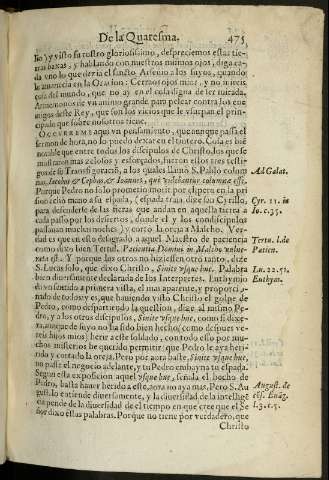 De la Quaresma. 475
lio) y visto su rostro gloriosissimo, despreciemos estas tie-
rras baxas, y hablando con nuestros mismos ojos, diga ca-
da vno lo que dezia el sancto Arsenio a los suyos, quando
le amanecia en la Oracion: Cerraos ojos mios, y no mireis
que al mundo, que no ay en el cosa digna de ser mirada.
Armemonos de vn animo grande para pelear contra los ene-
migos deste Rey, que son los vicios que le vsurpan el prin-
cipado que sobre nosotros tiene.
OCURREME aqui vn pensamiento, que aunque passa el
sermon de hora, no lo puedo dexar en el tintero. Cosa es in-
notable que entre todos los discipulos de Christo, los que se
mostraron mas zelosos y esforçados, fueron estos tres testi-
gos de su Transfiguració, a los quales llamó S. Pablo colum-
nas, Iacobus & Cephas, & Ioannes, qui videbantur columnæ esse. Ad Galat.
Porque Pedro no solo prometio morir por el, pero en la pri
sion echó mano a su espada, (espada traia, dize san Cyrillo, Cyr. 11. in
para defenderse de las fieras que andan en aquella tierra a Io. c. 35.
cada passo por los desiertos, donde el y los condiscipulos
passauan muchas noches) y cortó la oreja a Malcho. Ver-
dad es que en esto desagradó a aquel Maestro de paciencia Tertu. l. de
como dixo bien Tertul. Patientia Domini in Malcho vulne- Patien.
rata est. Y porque los otros no hiziessen otro tanto, dize
S. Lucas solo, que dixo Christo, Sinite vsque huc. Palabra Lu. 22. 51.
bien diuersamente declarada de los Interpretes. Euthymio Euthym.
dio sentido a primera vista, el mas aparente, y proporcio-
nado de todos y es, que hauiendo visto Christo el golpe de
Pedro, como despartiendo la question, dize al mismo Pe-
dro, y a los otros discipulos, Sinite vsque huc, como si dixe-
ra, aunque el y suyo no ha sido bien hecho, como despues ve-
reis hijos mios) herir a esse soldado, con todo esso por mu-
chos misterios he querido permitir que Pedro le aya heri-
do y cortado la oreja. Pero por aora baste, Sinite vsque huc,
no passe el negocio adelante, y tu Pedro embayna tu espada.
Segun esta exposicion aquel vsque huc, señala el hecho de
Pedro, basta hauer herido a esse, no no aya mas. Pero S. Au August. de
gust. lo entiende diuersamente, y la diuersidad de la inteligē cōs. Euāg.
cia pende de la diuersidad de el tiempo en que cree que el Se l. 3. c. 5.
ñor dixo estas palabras. Porque no tiene por verdadero, que
Christo